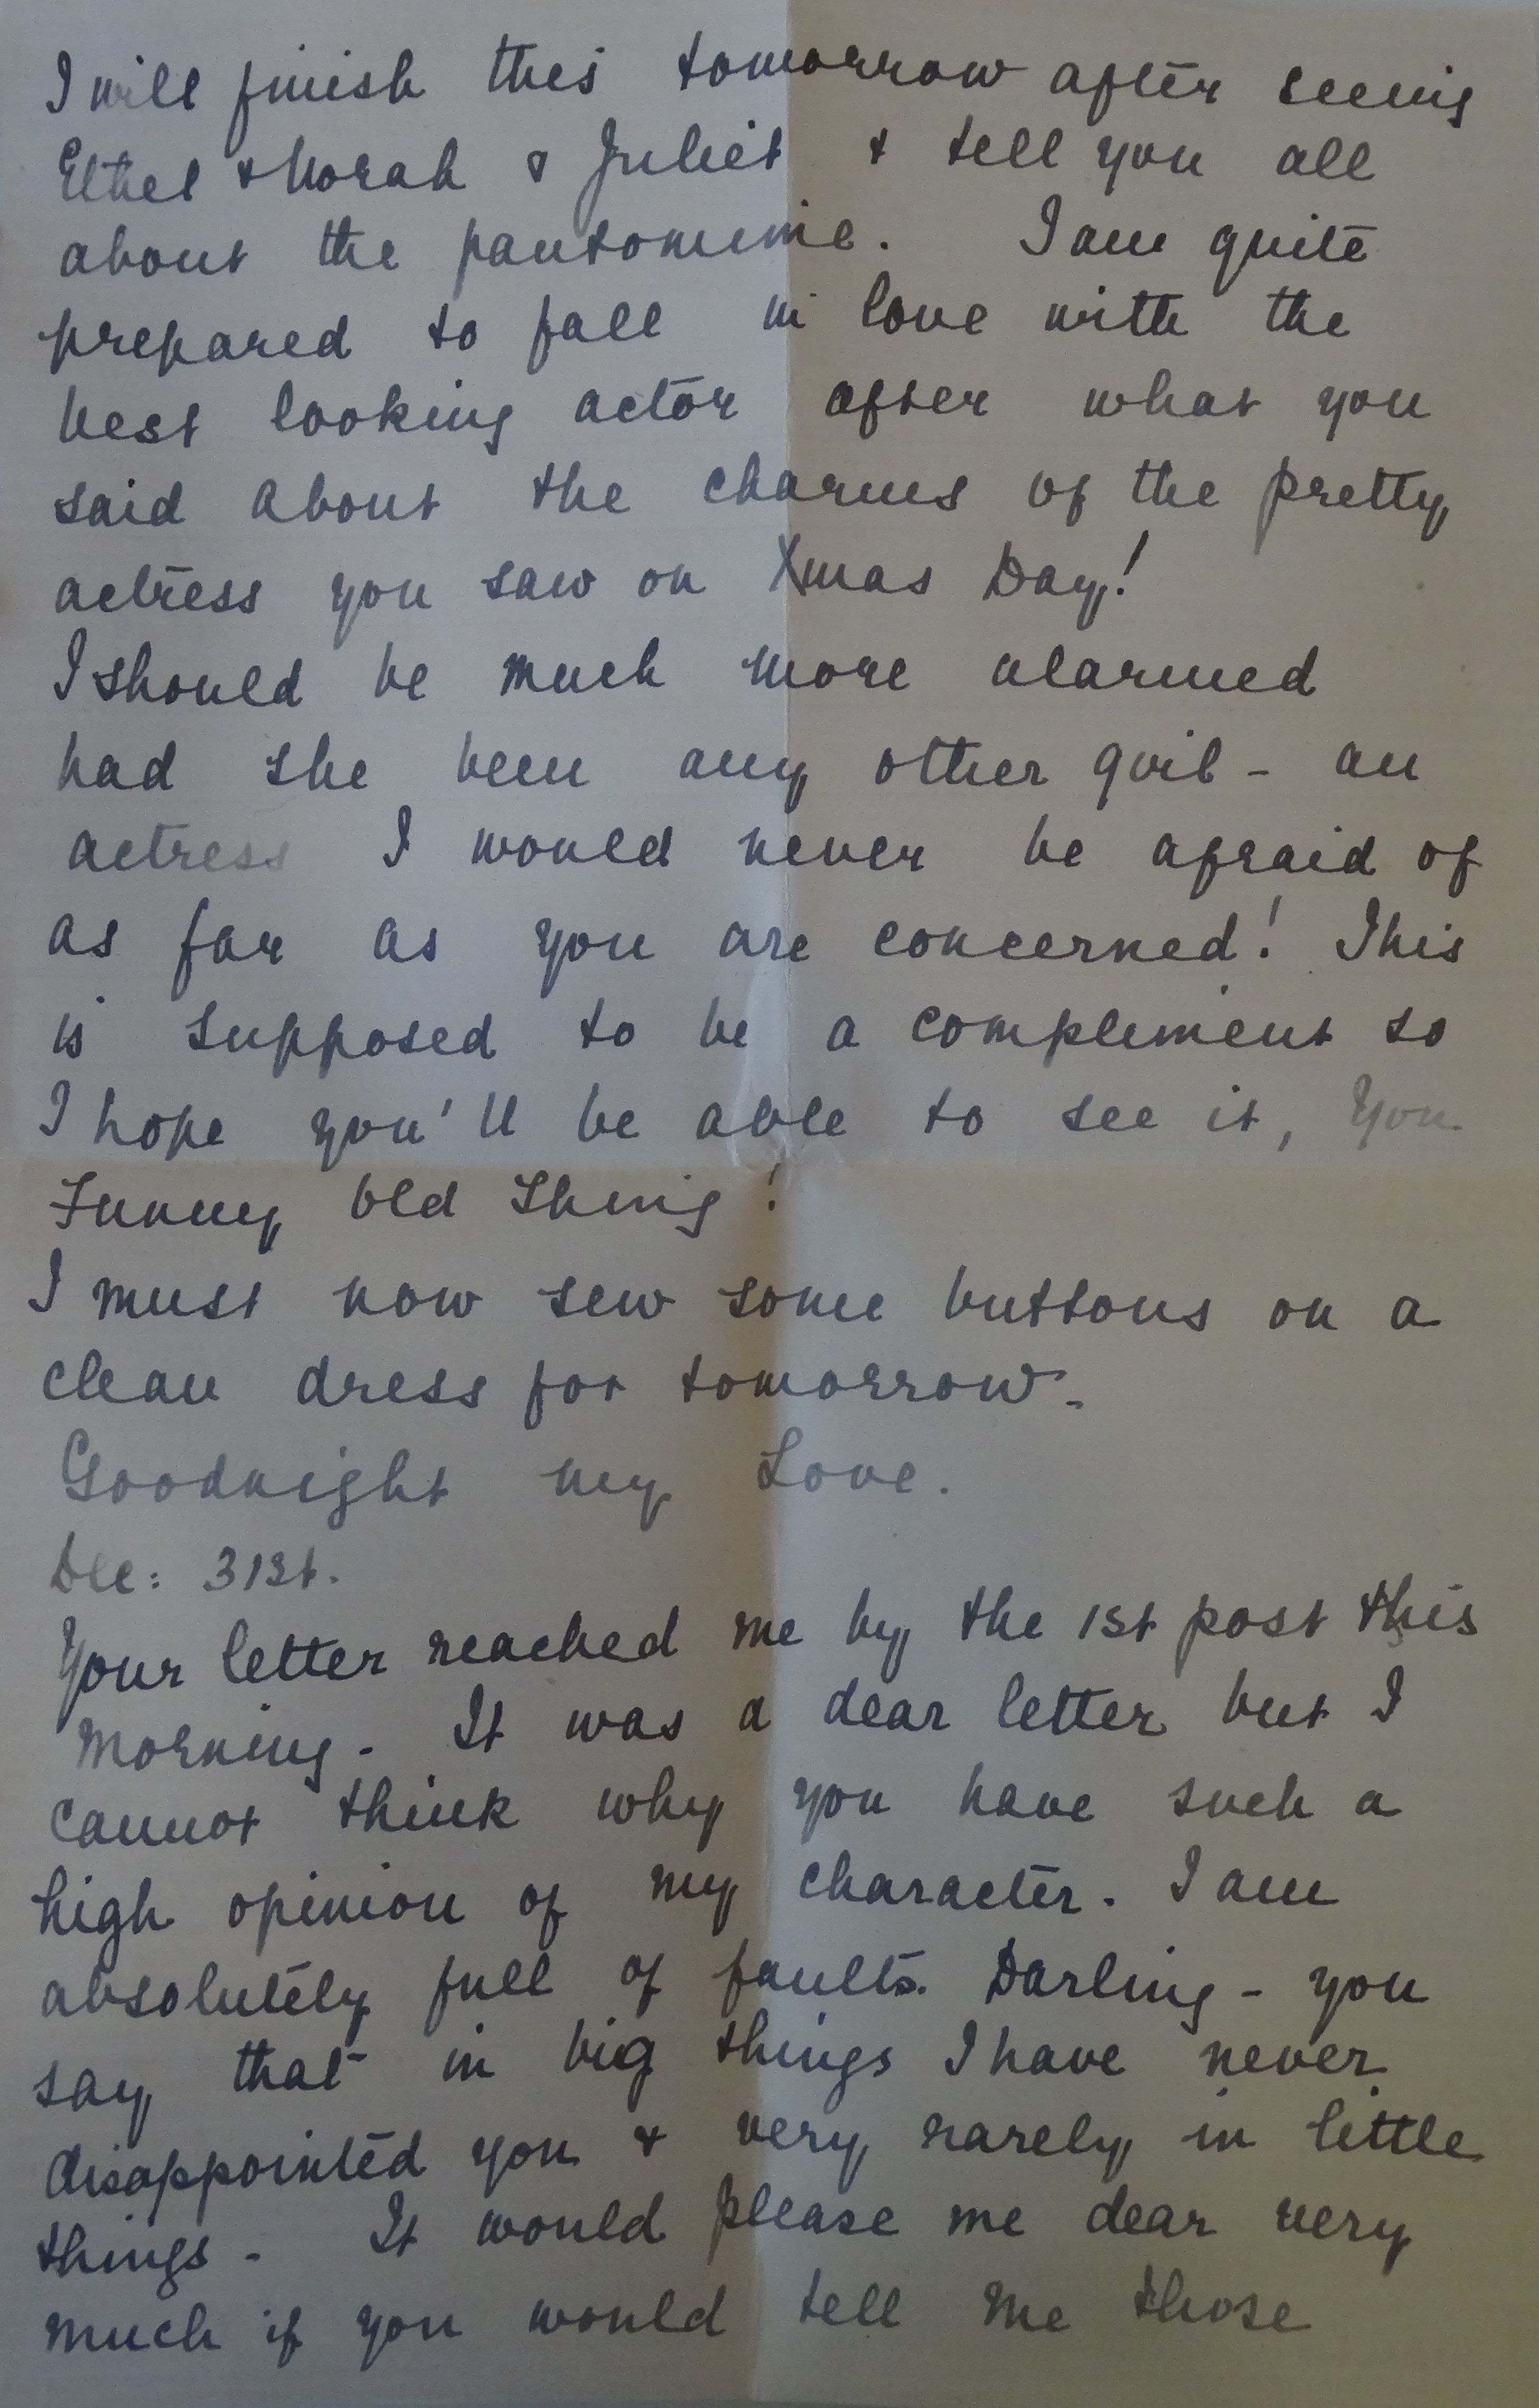 I will finish this tomorrow after seeing
Ethel & Norah & Juliet & tell you all
about the pantomime. I am quite
prepared to fall in love with the
best looking actor after what you
said about the charms of the pretty
actress you saw on Xmas Day!
I should be much more alarmed
had she been any other girl - an
actress I would never be afraid of
as far as you are concerned! This
is supposed to be a compliment so
I hope you'll be able to see it, You
Funny Old Thing!
I must now sew some buttons on a
clean dress for tomorrow.
Goodnight my Love.
Dec: 31st.
Your letter reached me by the 1st post this
morning. It was a dear letter but I
cannot think why you have such a
high opinion of my character. I am
absolutely full of faults. Darling - you
say that in big things I have never
disappointed you & very rarely in little
things - It would please me dear very
much if you would tell me those